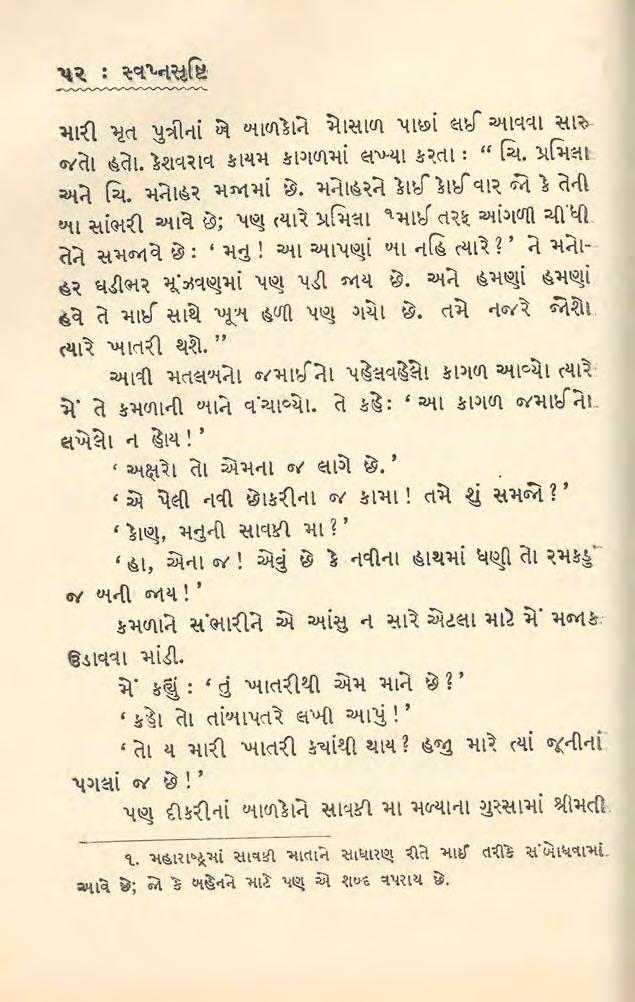 ૫૨ : સ્વપ્નસૃષ્ટિ
મારી મૃત પુત્રીનાં બે બાળકોને મોસાળ પાછાં લઈ આવવા સારુ
જતો હતો. કેશવરાવ કાયમ કાગળમાં લખ્યા કરતા : “ ચિ. પ્રમિલા
અને ચિ. મનોહર મજામાં છે. મનોહરને કોઈ કોઈ વાર જો કે તેની
બા સાંભરી આવે છે; પણ ત્યારે પ્રમિલા ૧માઈ તરફ આંગળી ચીંધી
તેને સમજાવે છે : ‘ મનુ ! આ આપણાં બા નહિ ત્યારે ?’ ને મનો-
હર ઘડીભર મૂંઝવણમાં પણ પડી જાય છે. અને હમણાં હમણાં
હવે તે માઈ સાથે ખૂબ હળી પણ ગયો છે. તમે નજરે જોશો
ત્યારે ખાતરી થશે. ”
આવી મતલબનો જમાઈનો પહેલવહેલો કાગળ આવ્યો ત્યારે
મેં તે કમળાની બાને વંચાવ્યો. તે કહે : ‘ આ કાગળ જમાઈનો
લખેલો ન હોય ! ’
‘ અક્ષરો તો એમના જ લાગે છે. ’
‘ એ પેલી નવી છોકરીના જ કામા ! તમે શું સમજો ? ’
‘ કોણ, મનુની સાવકી મા ? ’
‘ હા, એના જ ! એવું છે કે નવીના હાથમાં ધણી તો રમકડું
જ બની જાય ! ’
કમળાને સંભારીને એ આંસુ ન સારે એટલા માટે મેં મજાક
ઉડાવવા માંડી.
મેં કહ્યું : ‘ તું ખાતરીથી એમ માને છે ? ’
‘ કહો તો તાંબાપતરે લખી આપું ! ’
‘ તો ય મારી ખાતરી ક્યાંથી થાય ? હજુ મારે ત્યાં જૂનીનાં
પગલાં જ છે ! ’
પણ દીકરીનાં બાળકોને સાવકી મા મળ્યાના ગુસ્સામાં શ્રીમતી
૧. મહારાષ્ટ્રમાં સાવકી માતાને સાધારણ રીતે માઈ તરીકે સંબોધવામાં
આવે છે; જો કે બહેનને માટે પણ એ શબ્દ વપરાય છે.